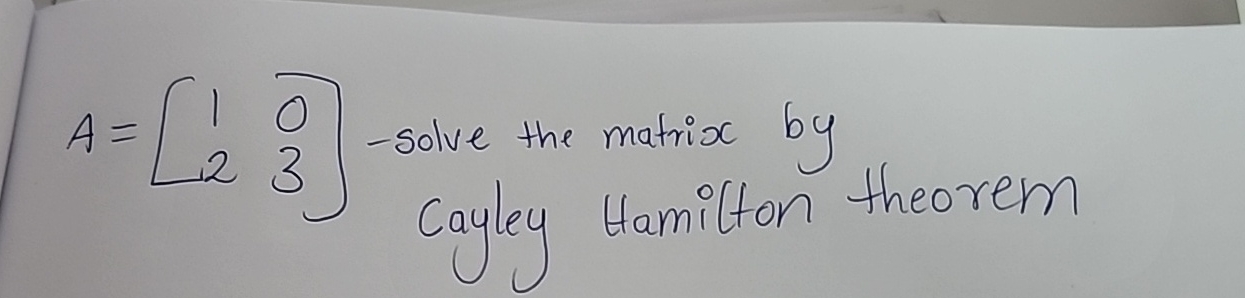 A = [1 0
2 3] - solve the matrix by
Cayley Hamilton theorem